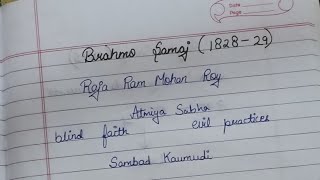 Date
Page
Brahmo Samaj (1828-29)
Raja Ram Mohan Roy
Atmiya Sabha
blind faith evil practices
Sambad Kaumudi